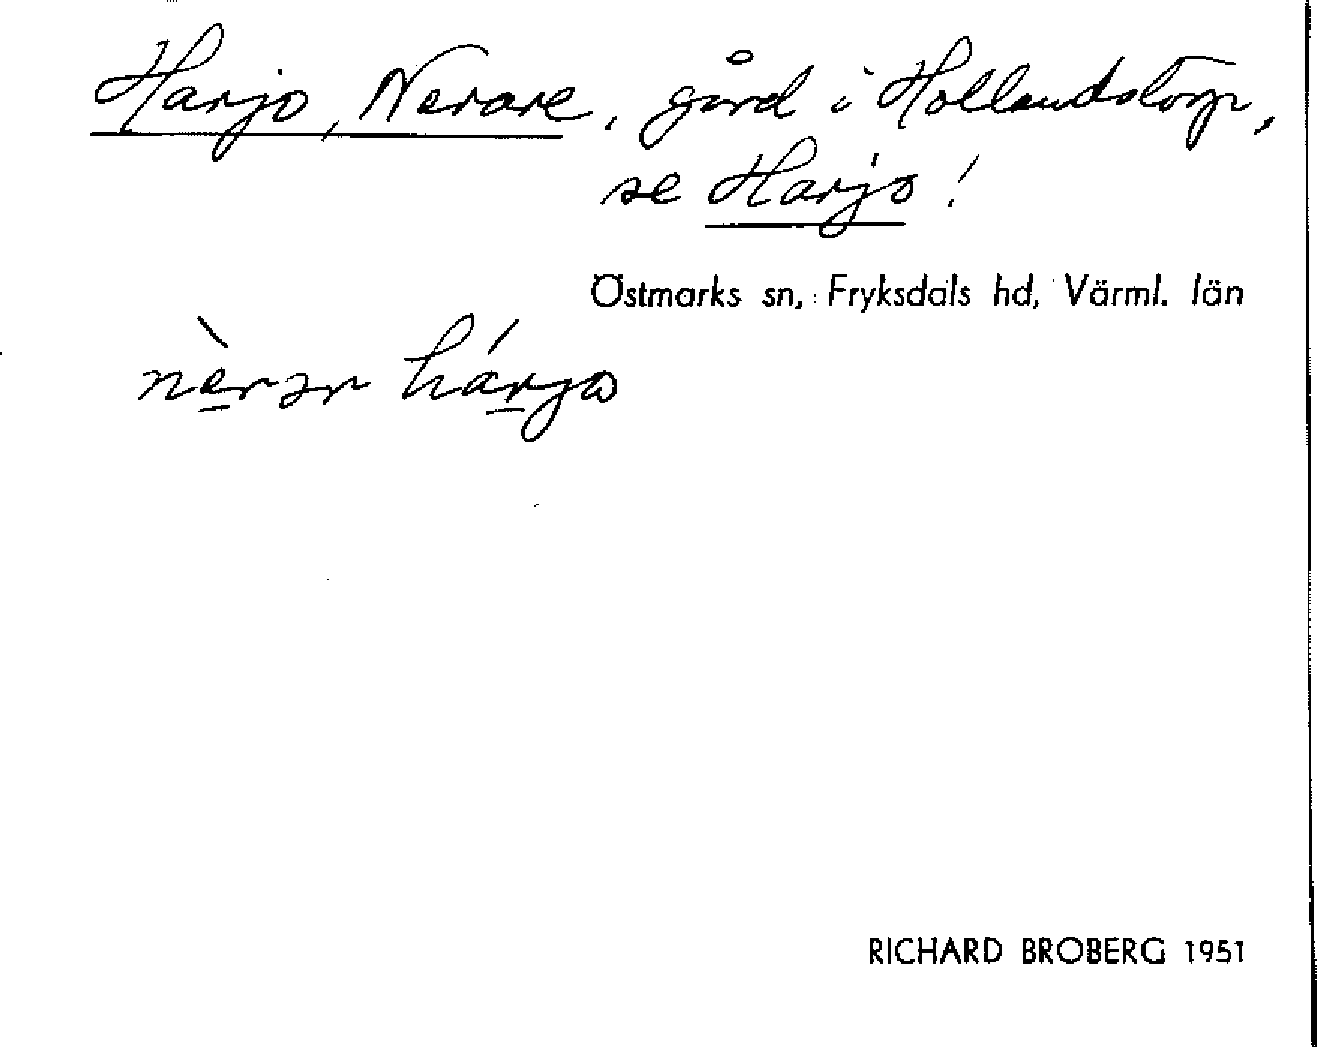 Harjo, Nerare, gård i Hollandstorp,
se Harjo!
Östmarks sn, Fryksdals hd, Värml. län
nèrər hárjo
RICHARD BROBERG 1951